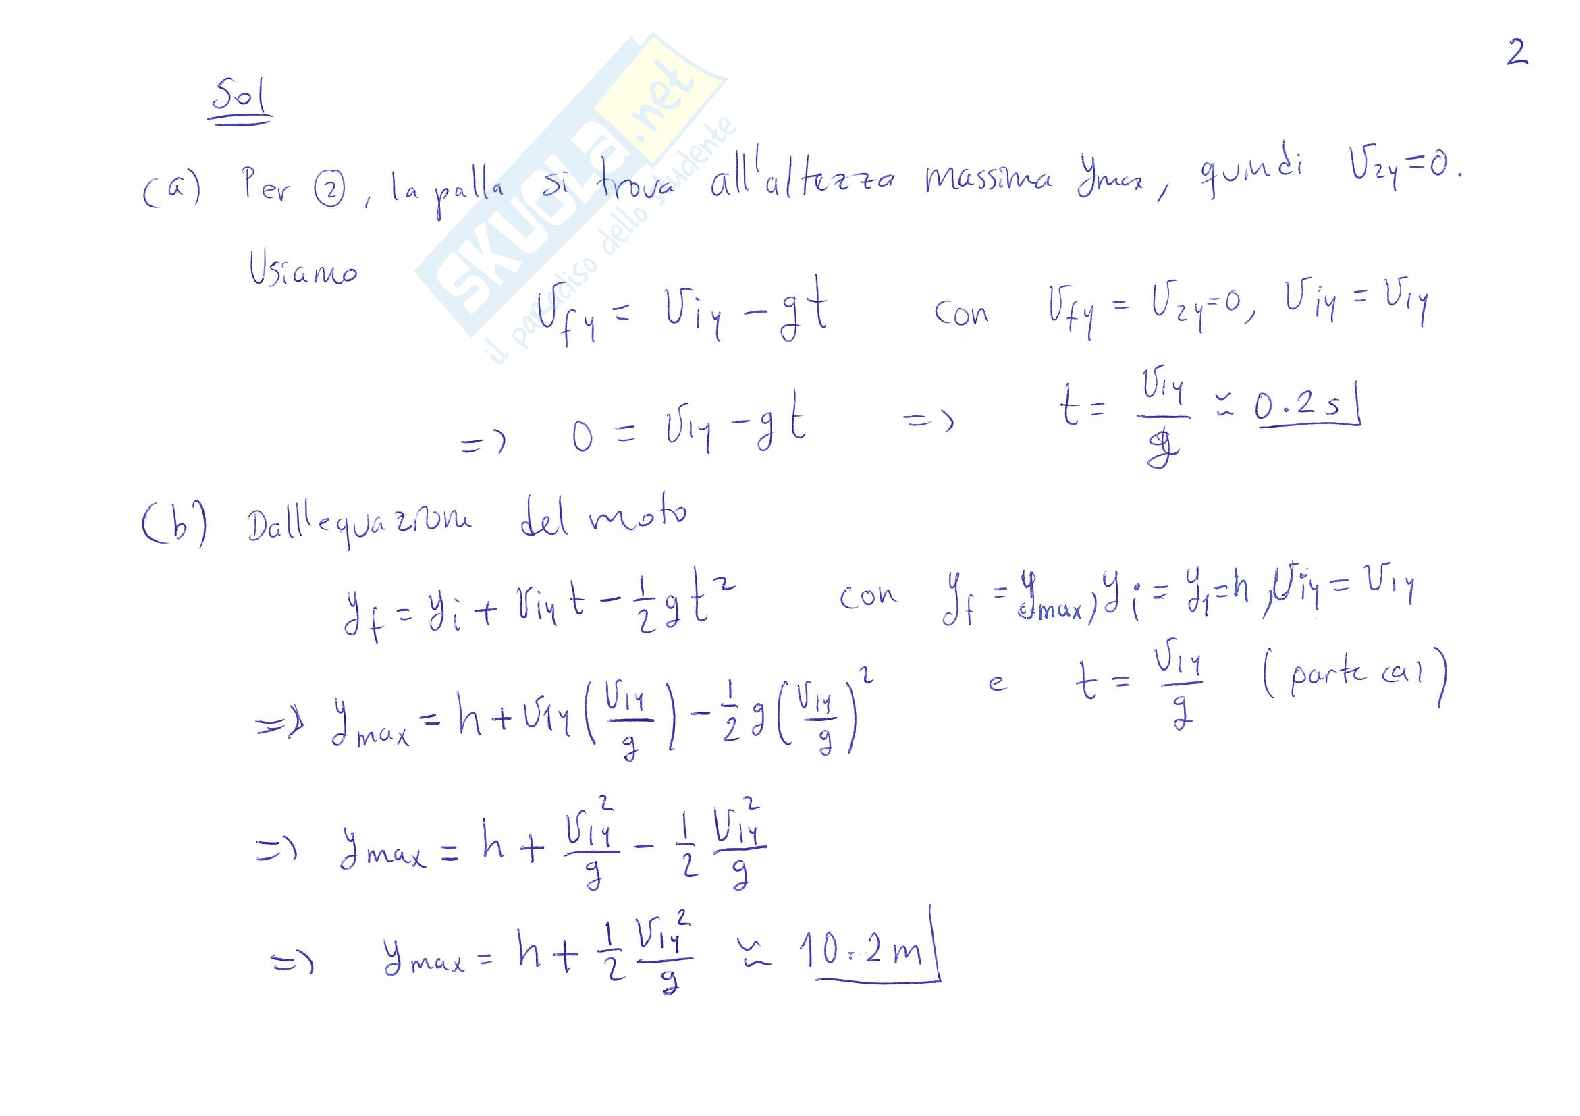 2
Sol
(a) Per ②, la palla si trova all'altezza massima y_max, quindi v_2y=0.
Usiamo
v_fy = v_iy - gt con v_fy = v_2y=0, v_iy = v_1y
=> 0 = v_1y - gt => t = v_1y/g ≃ 0.2 s
(b) Dall'equazione del moto
y_f = y_i + v_iy t - 1/2 g t² con y_f = y_max, y_i = y_1 = h, v_iy = v_1y
=> y_max = h + v_1y (v_1y/g) - 1/2 g (v_1y/g)² e t = v_1y/g (parte (a))
=> y_max = h + v_1y²/g - 1/2 v_1y²/g
=> y_max = h + 1/2 v_1y²/g ≃ 10.2 m
SKUOLA.net
il paradiso dello studente